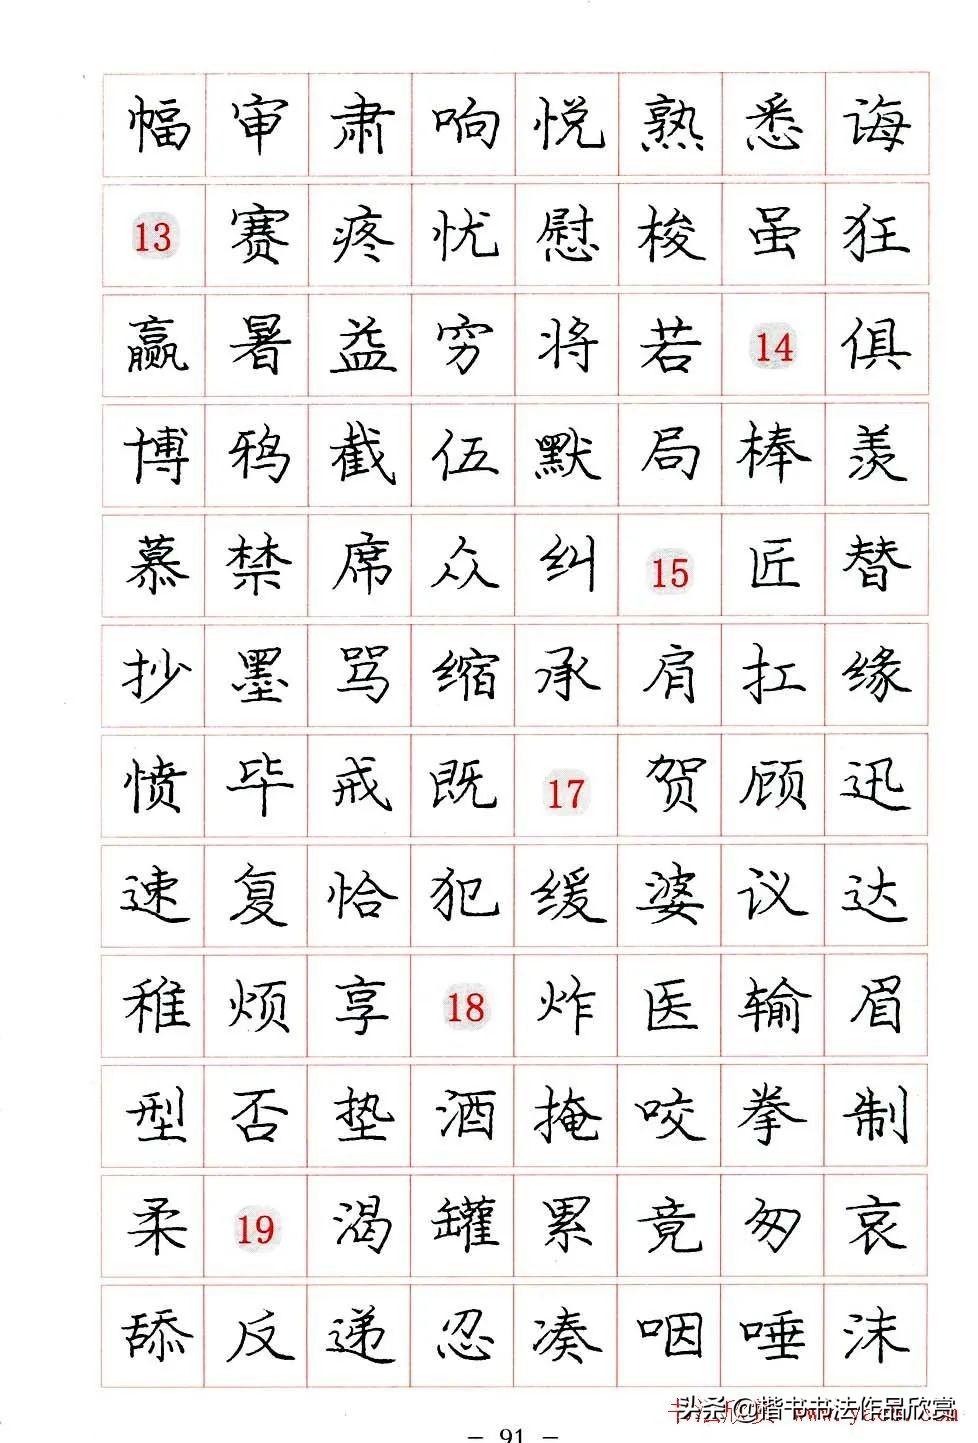 幅 审 肃 响 悦 熟 悉 诲
13 赛 疼 忧 慰 梭 虽 狂
赢 暑 益 穷 将 若 14 俱
博 鸦 截 伍 默 局 棒 羡
慕 禁 席 众 纠 15 匠 替
抄 墨 骂 缩 承 肩 扛 缘
愤 毕 戒 既 17 贺 顾 迅
速 复 恰 犯 缓 婆 议 达
稚 烦 享 18 炸 医 输 眉
型 否 垫 酒 掩 咬 拳 制
柔 19 渴 罐 累 竟 匆 哀
舔 反 递 忍 凑 咽 唾 沫
头条@楷书书法作品欣赏
- 91 -